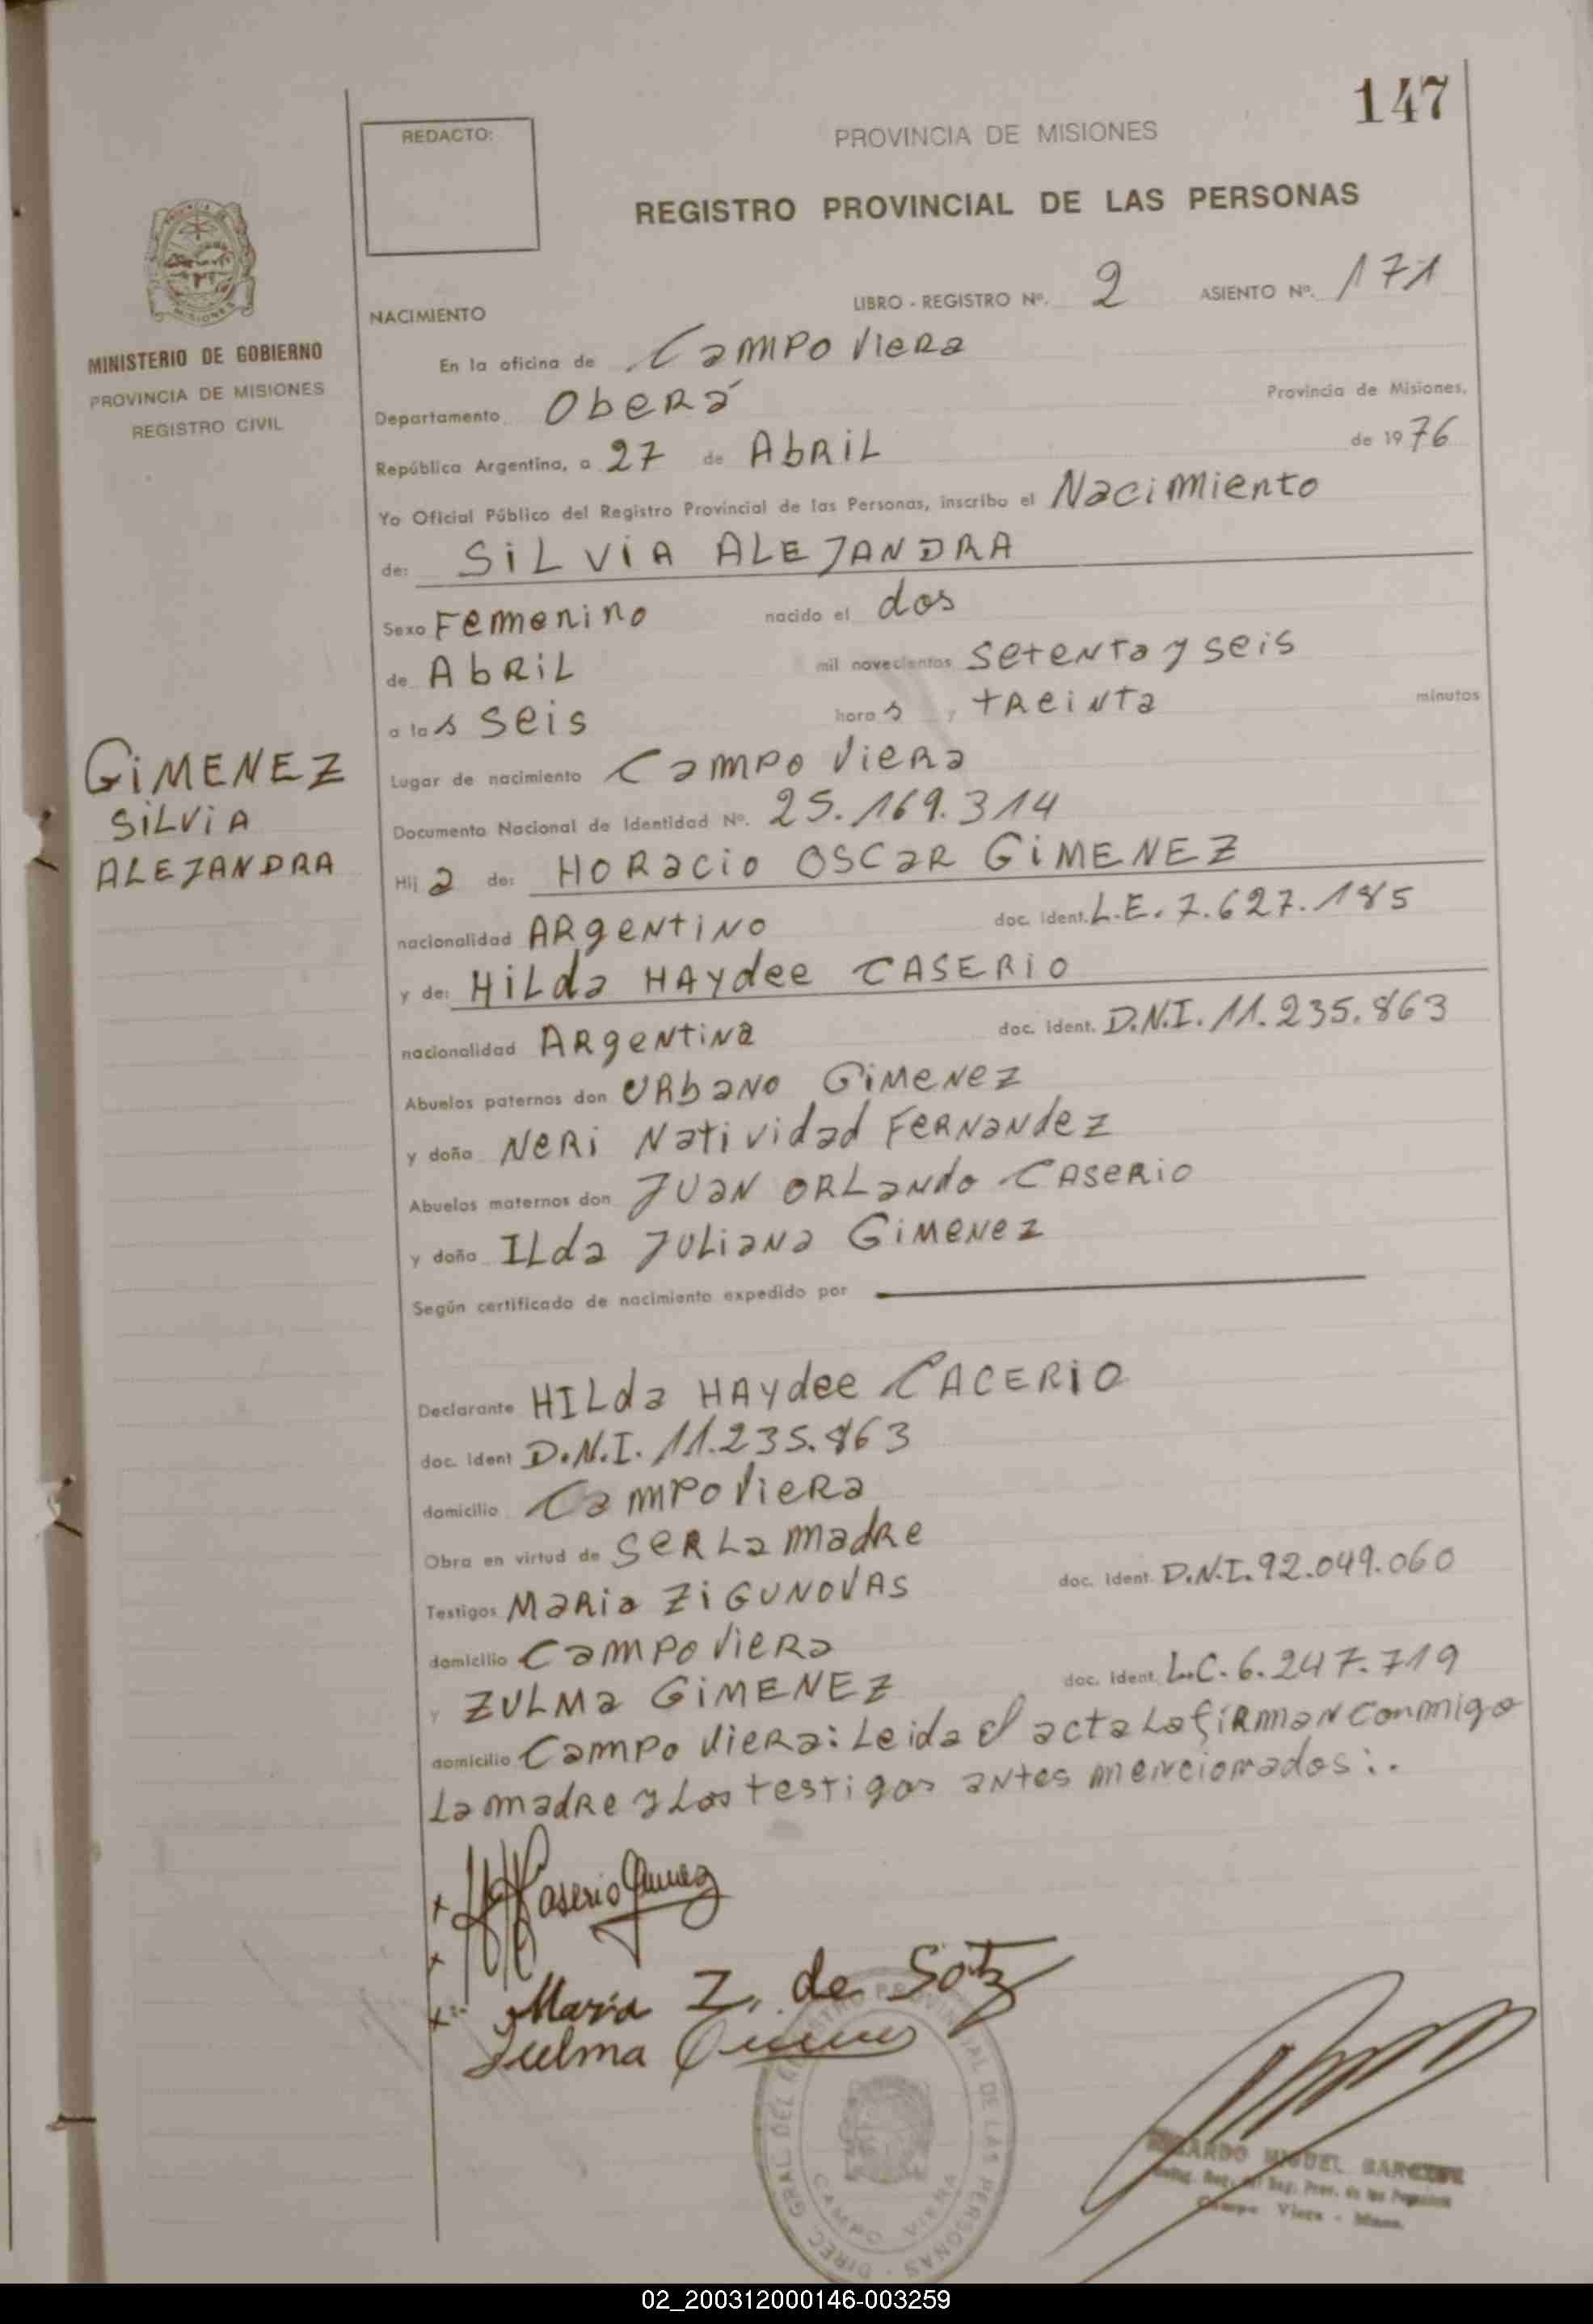 147
REDACTO:
PROVINCIA DE MISIONES
REGISTRO PROVINCIAL DE LAS PERSONAS
MISIONES
MINISTERIO DE GOBIERNO
PROVINCIA DE MISIONES
REGISTRO CIVIL
NACIMIENTO
LIBRO - REGISTRO Nº. 2 ASIENTO Nº. 171
En la oficina de Campo Viera
Departamento Oberá Provincia de Misiones,
República Argentina, a 27 de Abril de 1976
Yo Oficial Público del Registro Provincial de las Personas, inscribo el Nacimiento
de: SILVIA ALEJANDRA
Sexo Femenino nacido el dos
de Abril mil novecientos setenta y seis
a las seis horas y treinta minutos
GIMENEZ
SILVIA
ALEJANDRA
Lugar de nacimiento Campo Viera
Documento Nacional de Identidad Nº. 25.169.314
Hija de: HORacio OSCaR GIMENEZ
nacionalidad ARgentino doc. ident. L.E. 7.627.185
y de: HILda HAydee CASERIO
nacionalidad ARgentina doc. ident. D.N.I. 11.235.863
Abuelos paternos don URbano GiMeNez
y doña NeRi Natividad FeRNandez
Abuelos maternos don JUaN ORLando CAseRio
y doña ILda JULiana GiMeNez
Según certificado de nacimiento expedido por
Declarante HILda HAydee CACERIO
doc. ident D.N.I. 11.235.863
domicilio Campo Viera
Obra en virtud de SeR La madRe
Testigos MaRia ZIGUNOVAS doc. ident. D.N.I. 92.049.060
domicilio Campo Viera
y ZULMa GIMENEZ doc. ident. L.C. 6.247.719
domicilio Campo Viera: Leida el acta La firman conmigo
La madre y Los testigos antes mencionados:.
Caserio
Maria Z. de
Zulma
DIREC. GRAL DEL REGISTRO PROVINCIAL DE LAS PERSONAS
CAMPO VIERA
MIGUEL
Campo Viera - Mnes.
02_200312000146-003259